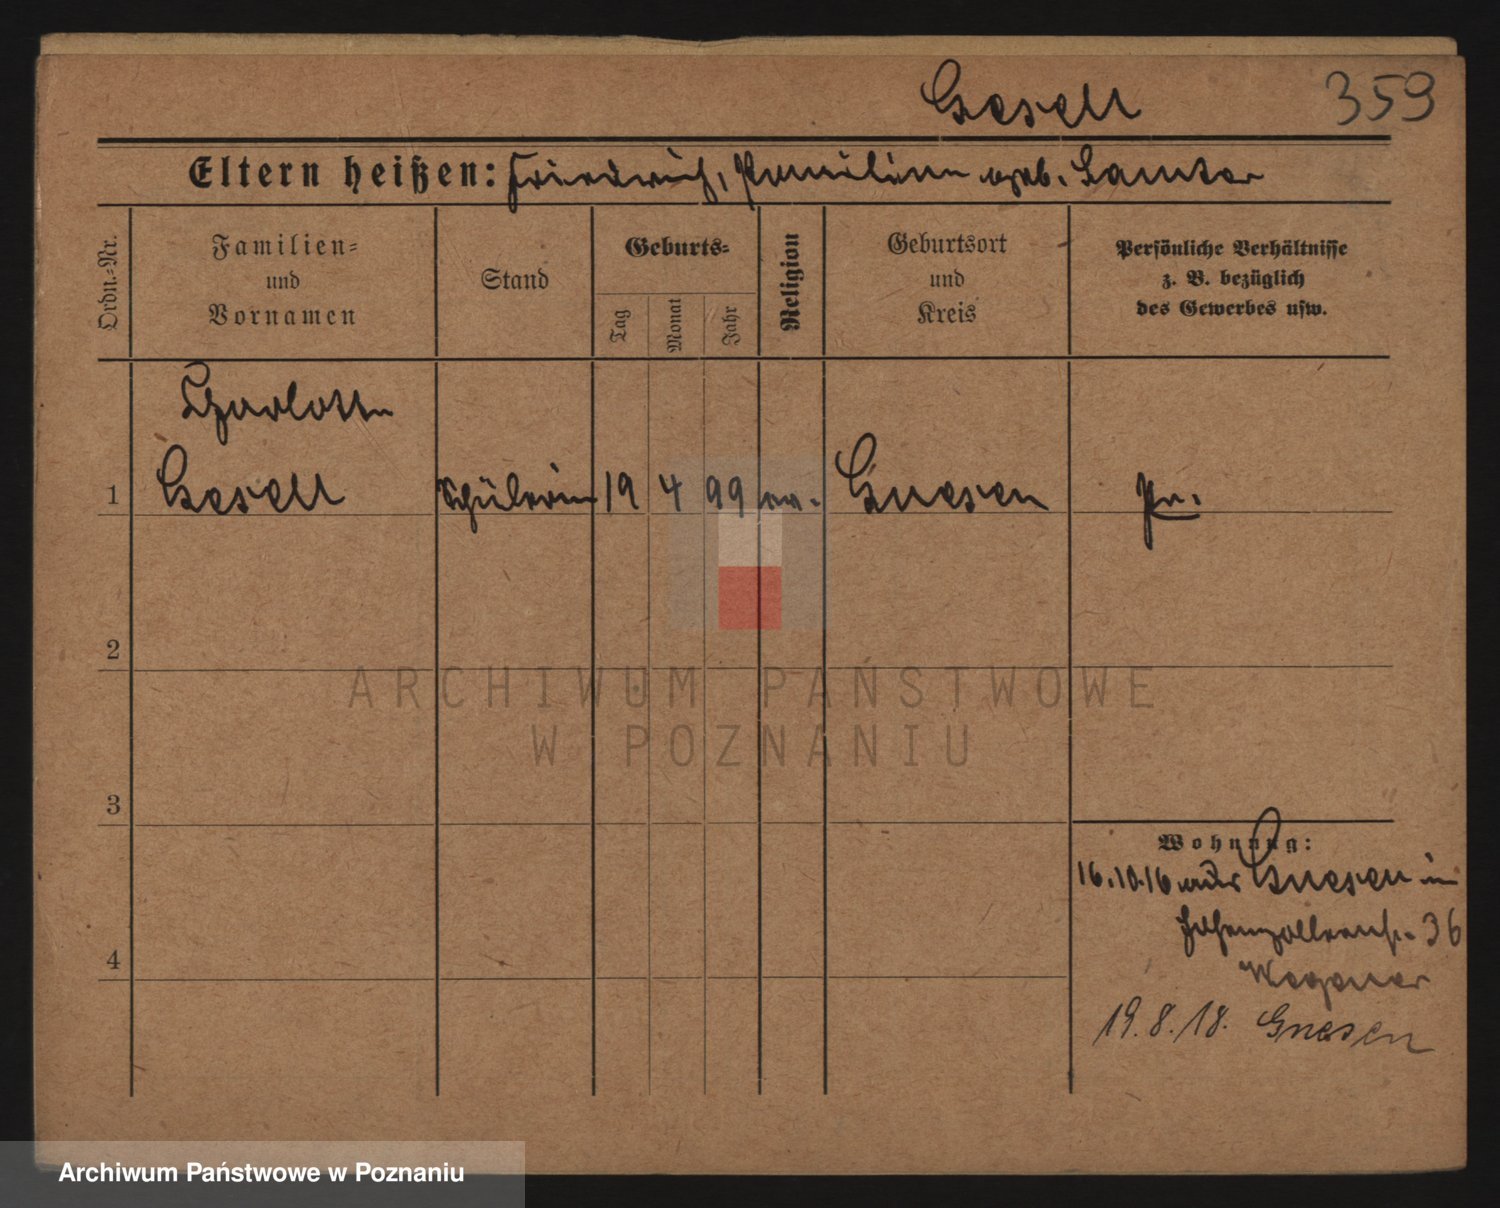 Gesell 359
Eltern heißen: Friedrich, Pauline geb. Santer
Ordn.-Nr.
Familien-
und
Vornamen
Stand
Geburts-
Tag
Monat
Jahr
Religion
Geburtsort
und
Kreis
Persönliche Verhältnisse
z. B. bezüglich
des Gewerbes usw.
Charlotte
1 Gesell Schülerin 19 4 99 ev. Gnesen Pr.
2
3
4
Wohnung:
16.10.16 aus Gnesen in
Hohenzollernstr. 36
Wegener
19.8.18. Gnesen
ARCHIWUM PAŃSTWOWE
W POZNANIU
Archiwum Państwowe w Poznaniu